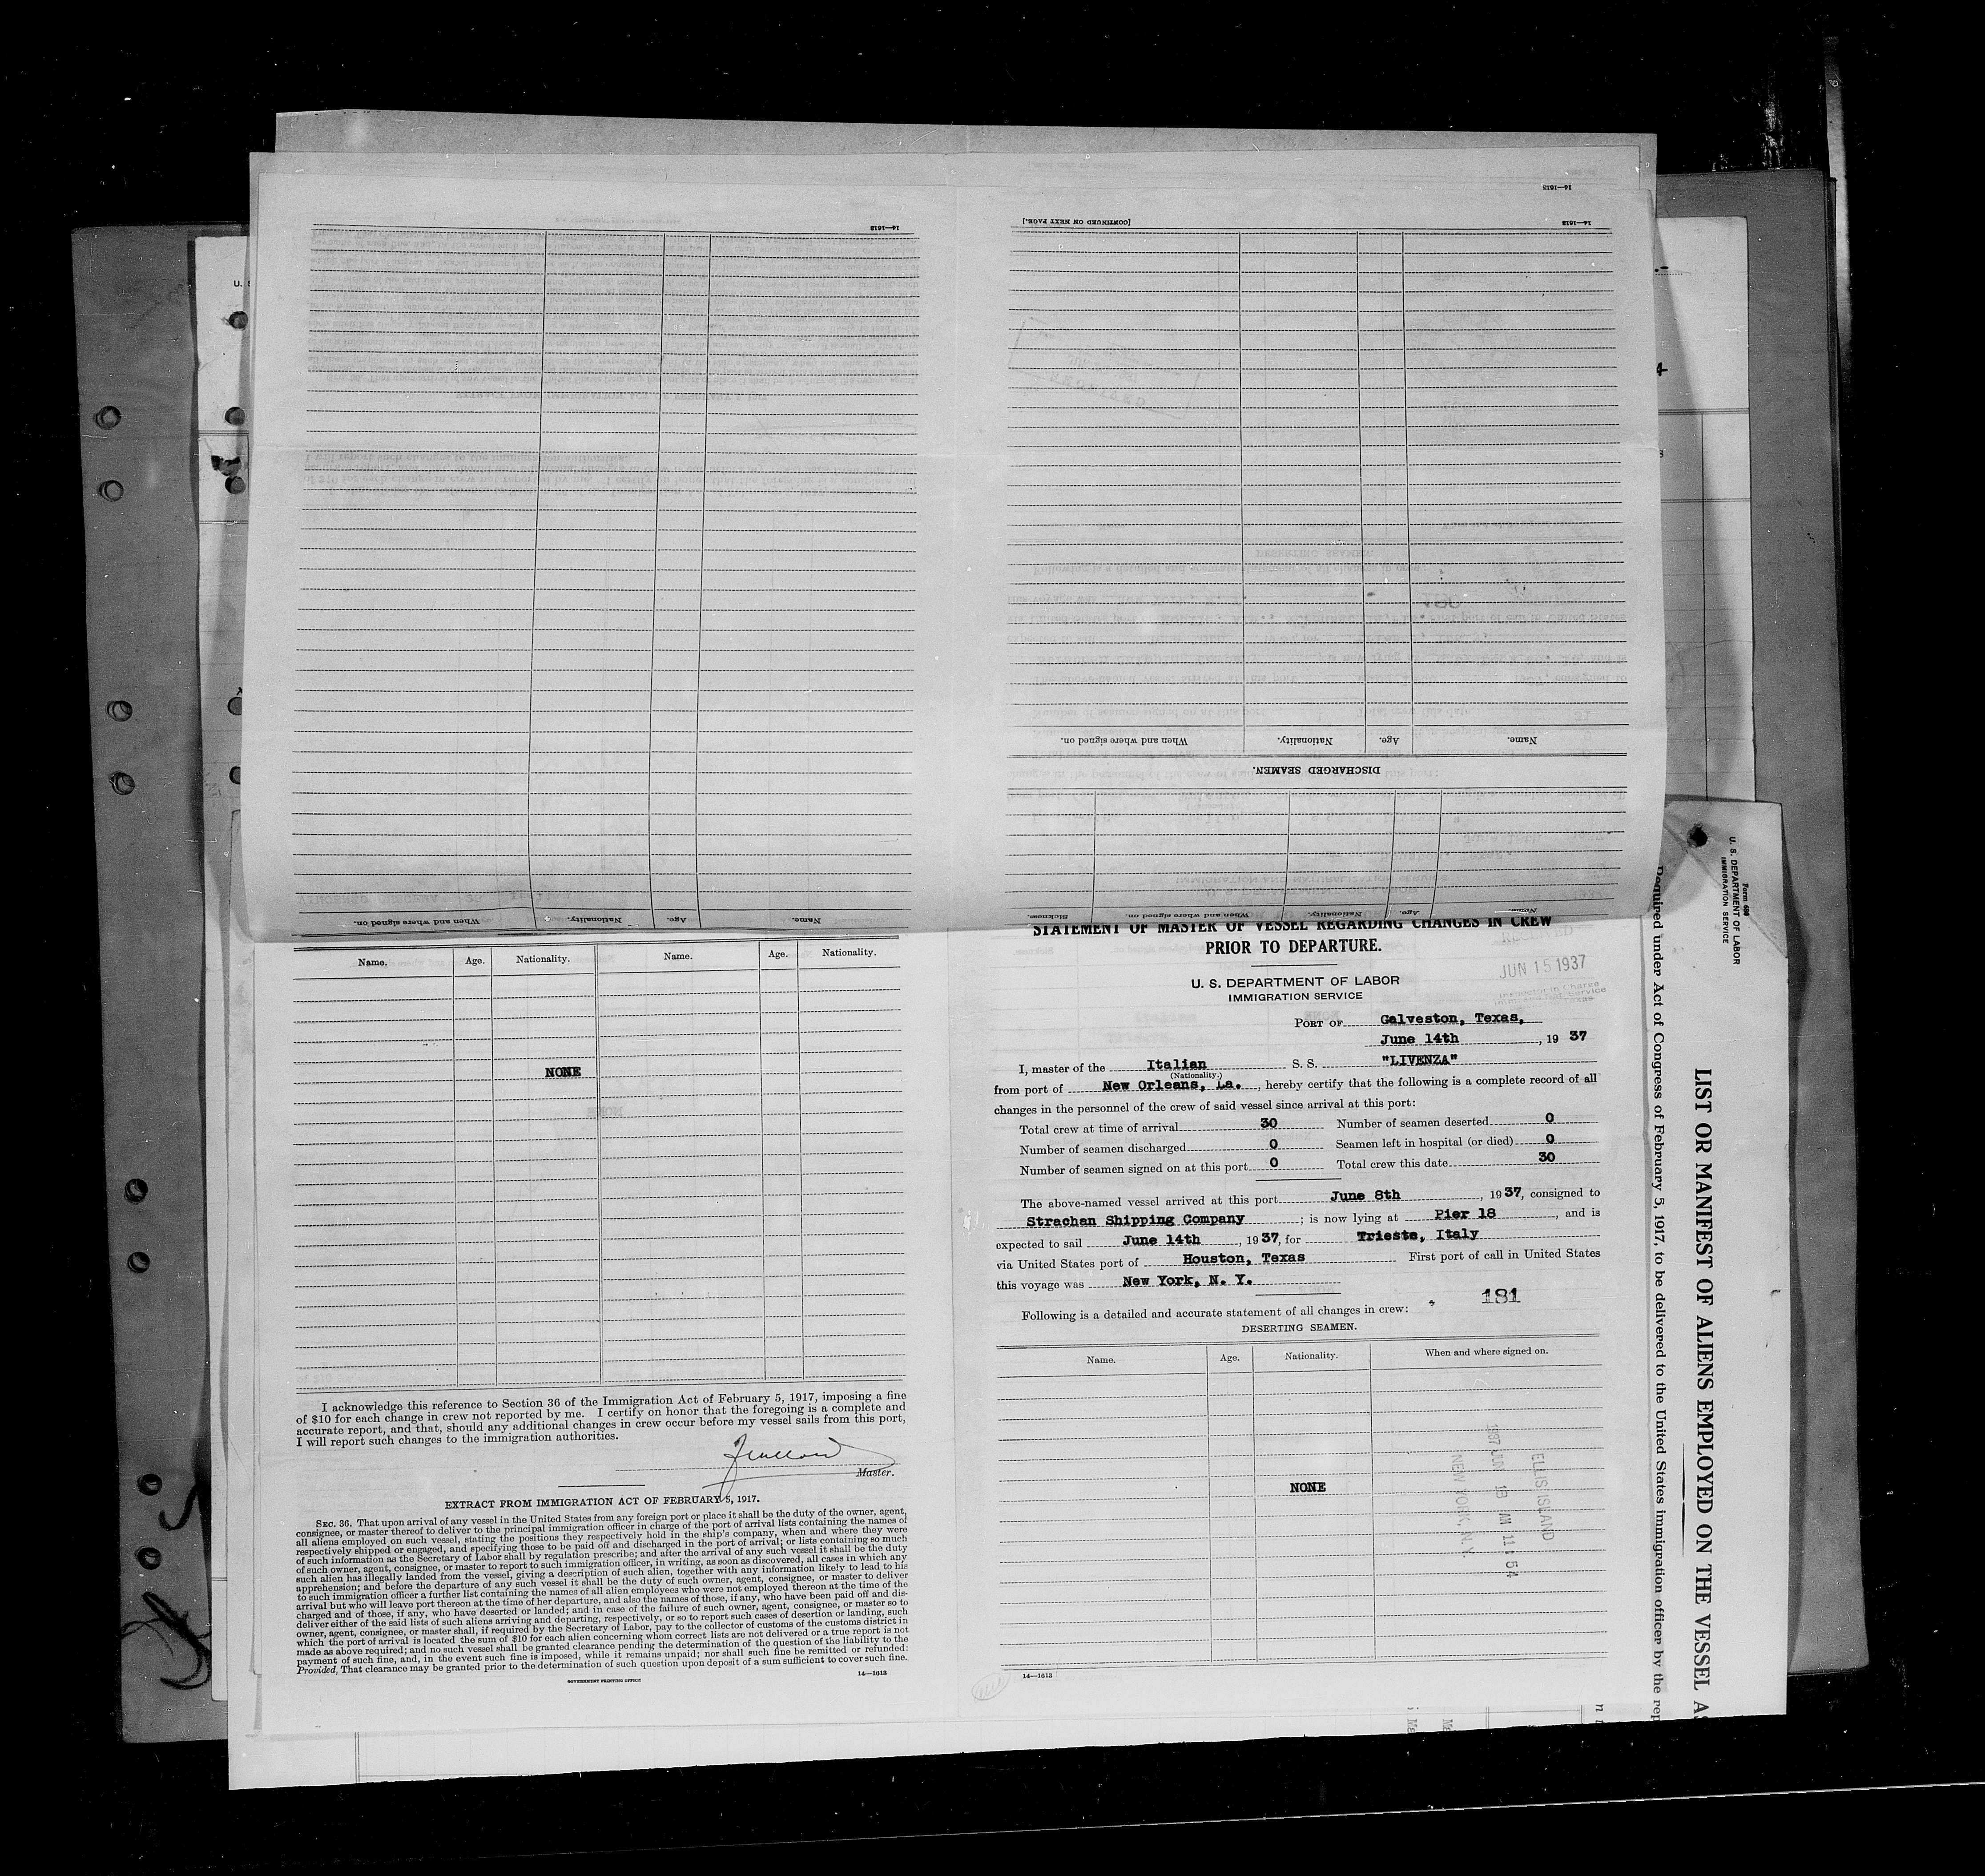 14—1613
14—1613
[CONTINUED ON NEXT PAGE.]
14—1613
Name. Age. Nationality. When and where signed on.
DISCHARGED SEAMEN.
Name. Age. Nationality. When and where signed on. Sickness.
Name. Age. Nationality. When and where signed on.
Name. Age. Nationality. Name. Age. Nationality.
NONE
I acknowledge this reference to Section 36 of the Immigration Act of February 5, 1917, imposing a fine
of $10 for each change in crew not reported by me. I certify on honor that the foregoing is a complete and
accurate report, and that, should any additional changes in crew occur before my vessel sails from this port,
I will report such changes to the immigration authorities.
Master.
EXTRACT FROM IMMIGRATION ACT OF FEBRUARY 5, 1917.
SEC. 36. That upon arrival of any vessel in the United States from any foreign port or place it shall be the duty of the owner, agent,
consignee, or master thereof to deliver to the principal immigration officer in charge of the port of arrival lists containing the names of
all aliens employed on such vessel, stating the positions they respectively hold in the ship's company, when and where they were
respectively shipped or engaged, and specifying those to be paid off and discharged in the port of arrival; or lists containing so much
of such information as the Secretary of Labor shall by regulation prescribe; and after the arrival of any such vessel it shall be the duty
of such owner, agent, consignee, or master to report to such immigration officer, in writing, as soon as discovered, all cases in which any
such alien has illegally landed from the vessel, giving a description of such alien, together with any information likely to lead to his
apprehension; and before the departure of any such vessel it shall be the duty of such owner, agent, consignee, or master to deliver
to such immigration officer a further list containing the names of all alien employees who were not employed thereon at the time of the
arrival but who will leave port thereon at the time of her departure, and also the names of those, if any, who have been paid off and dis-
charged and of those, if any, who have deserted or landed; and in case of the failure of such owner, agent, consignee, or master so to
deliver either of the said lists of such aliens arriving and departing, respectively, or so to report such cases of desertion or landing, such
owner, agent, consignee, or master shall, if required by the Secretary of Labor, pay to the collector of customs of the customs district in
which the port of arrival is located the sum of $10 for each alien concerning whom correct lists are not delivered or a true report is not
made as above required; and no such vessel shall be granted clearance pending the determination of the question of the liability to the
payment of such fine, and, in the event such fine is imposed, while it remains unpaid; nor shall such fine be remitted or refunded:
Provided, That clearance may be granted prior to the determination of such question upon deposit of a sum sufficient to cover such fine.
GOVERNMENT PRINTING OFFICE
14—1613
STATEMENT OF MASTER OF VESSEL REGARDING CHANGES IN CREW
PRIOR TO DEPARTURE.
JUN 15 1937
Inspector in Charge
Immigration Service
Texas
U. S. DEPARTMENT OF LABOR
IMMIGRATION SERVICE
PORT OF Galveston, Texas,
June 14th, 19 37
I, master of the Italian S. S. "LIVENZA"
(Nationality.)
from port of New Orleans, La., hereby certify that the following is a complete record of all
changes in the personnel of the crew of said vessel since arrival at this port:
Total crew at time of arrival 30 Number of seamen deserted 0
Number of seamen discharged 0 Seamen left in hospital (or died) 0
Number of seamen signed on at this port 0 Total crew this date 30
The above-named vessel arrived at this port June 8th, 19 37, consigned to
Strachan Shipping Company; is now lying at Pier 18, and is
expected to sail June 14th, 19 37, for Trieste, Italy
via United States port of Houston, Texas First port of call in United States
this voyage was New York, N. Y.
181
Following is a detailed and accurate statement of all changes in crew:
DESERTING SEAMEN.
Name. Age. Nationality. When and where signed on.
NONE
ELLIS ISLAND
1937 JUN 19 AM 11 54
NEW YORK, N.Y.
14—1613
Form 680
U. S. DEPARTMENT OF LABOR
IMMIGRATION SERVICE
LIST OR MANIFEST OF ALIENS EMPLOYED ON THE VESSEL AS
Required under Act of Congress of February 5, 1917, to be delivered to the United States immigration officer by the rep